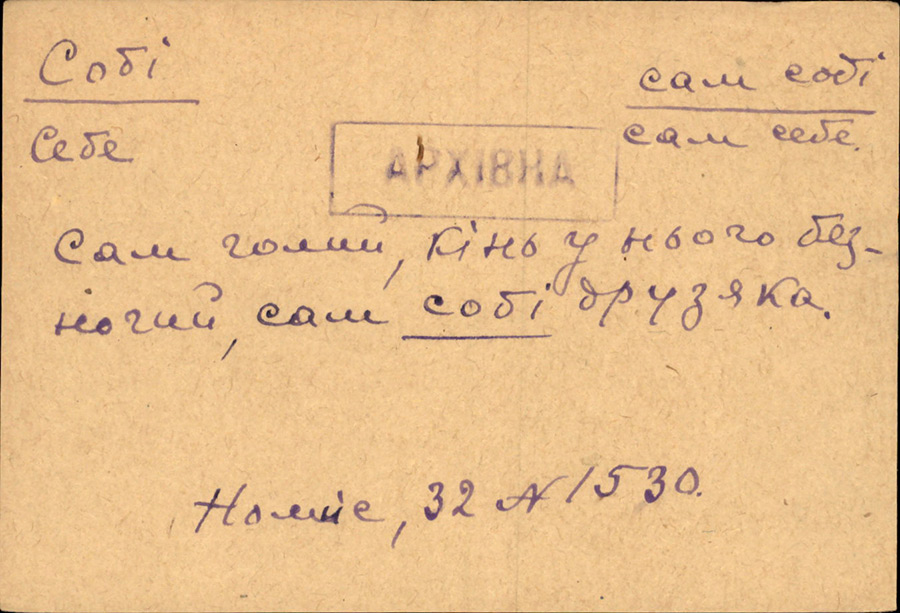 Собі
сам собі
Себе
сам себе.
АРХІВНА
Сам голий, кінь у нього без-
ногий, сам собі друзяка.
Номис, 32 № 1530.